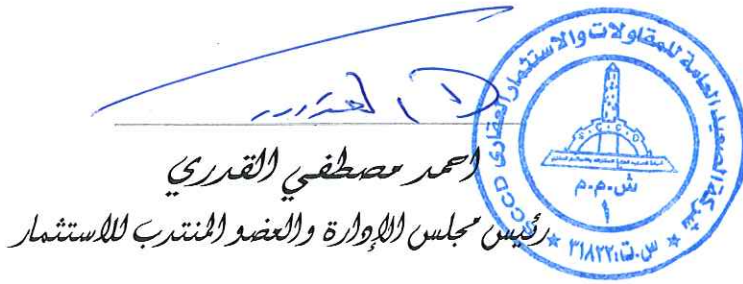 احمد مصطفي القدري
رئيس مجلس الإدارة والعضو المنتدب للاستثمار
شركة الصعيد العامة للمقاولات والاستثمار العقارى SGCCD
ش.م.م
١
س.ت: ٣١٨٢٢